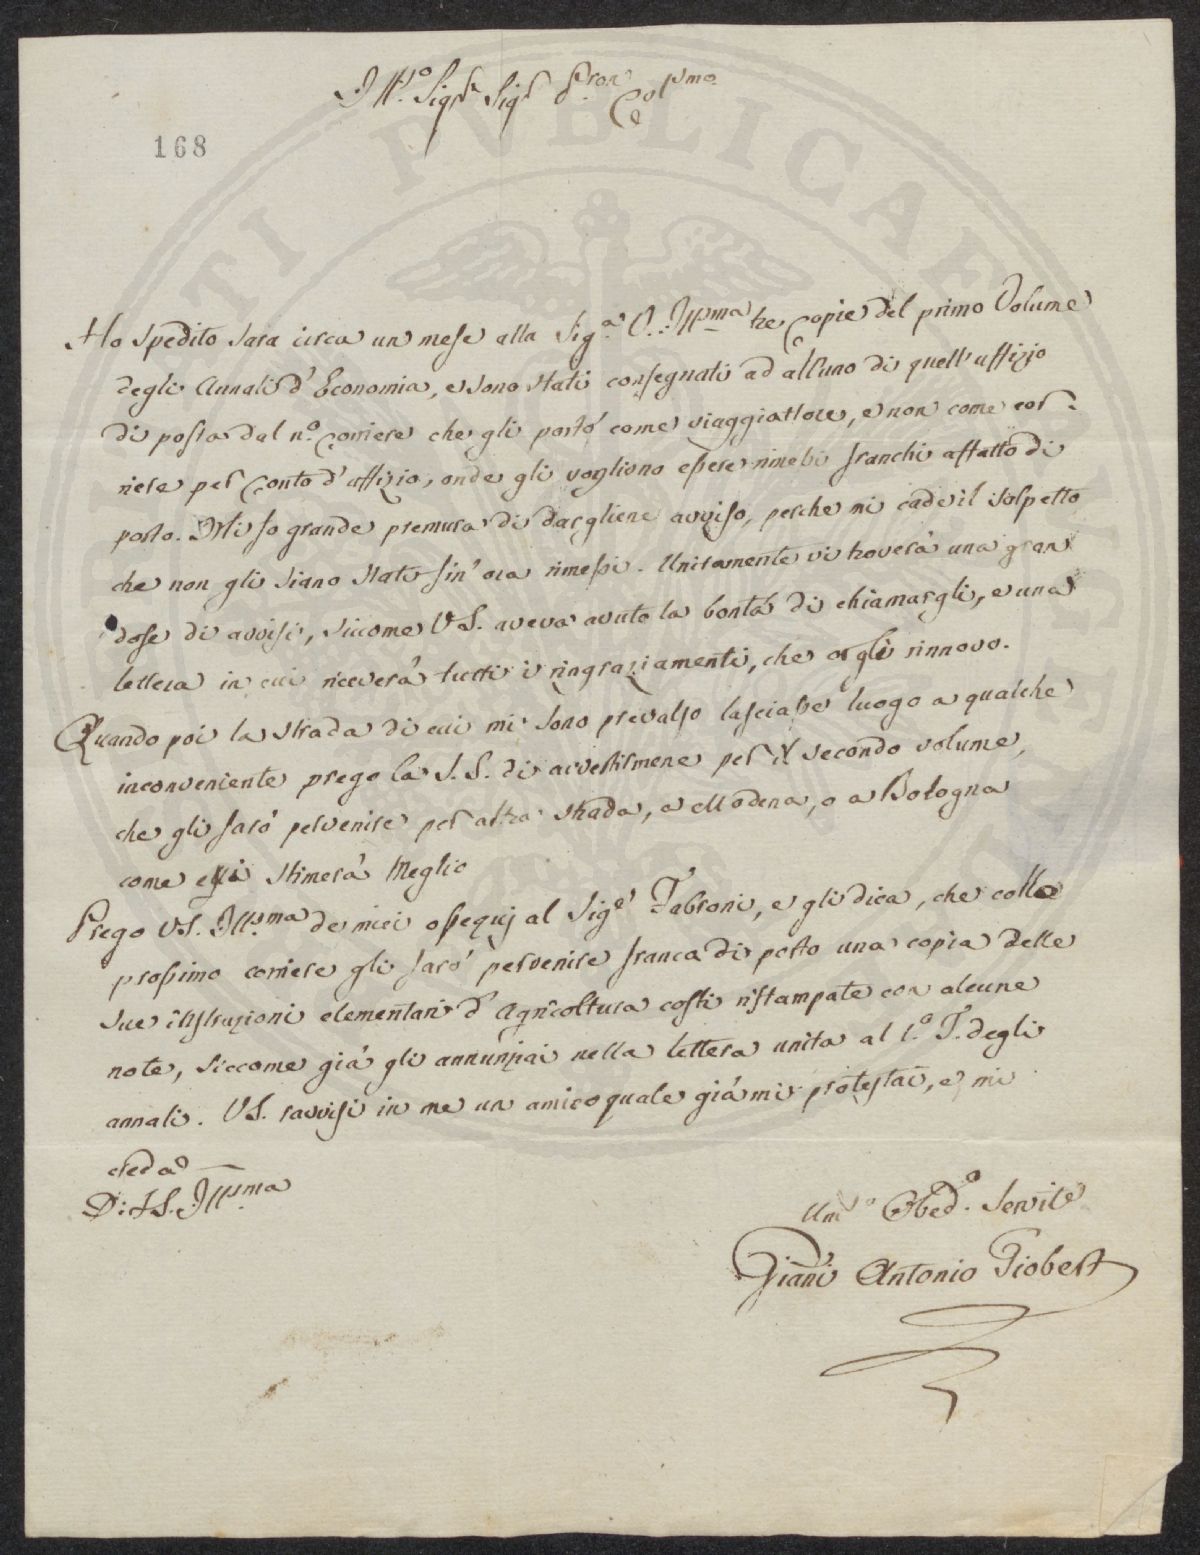 Ill.o Sig.r Sig.r Pron Col.mo
168
Ho spedito sara circa un mese alla Sig.a V. Ill.ma tre copie del primo Volume
degli Annali d'Economia, e sono stati consegnati ad alcuno di quell'uffizio
di posta dal n.o corriere che gli portò come viaggiattore, e non come cor-
riere per conto d'uffizio, onde gli vogliono essere rimessi franchi affatto di
porto. Mi fo grande premura di dargliene avviso, perche mi cade il sospetto
che non gli siano stati fin'ora rimessi. Unitamente vi troverà una gran
dose di avvisi, siccome V S. aveva avuto la bontà di chiamargli, e una
lettera in cui riceverà tutti i ringraziamenti, che or gli rinnovo.
Quando poi la strada di cui mi sono prevalso lasciasse luogo a qualche
inconveniente prego la S. S. di avvertirmene per il secondo volume,
che gli farò pervenire per altra strada, a Modena, o a Bologna
come ella stimerà meglio
Prego VS. Ill.ma de miei ossequj al Sig.e Fabroni, e gli dica, che colla
prossimo corriere gli farò pervenire franca di porto una copia delle
sue istruzioni elementari d'Agricoltura costi ristampate con alcune
note, siccome già gli annunziai nella lettera unita al 1.o T. degli
annali. VS. ravvisi in me un amico quale già mi protestai, e mi
creda
Di S.S. Ill.ma
Um.o Obed.o Servite
Giani Antonio Giobert
PUBLICAE